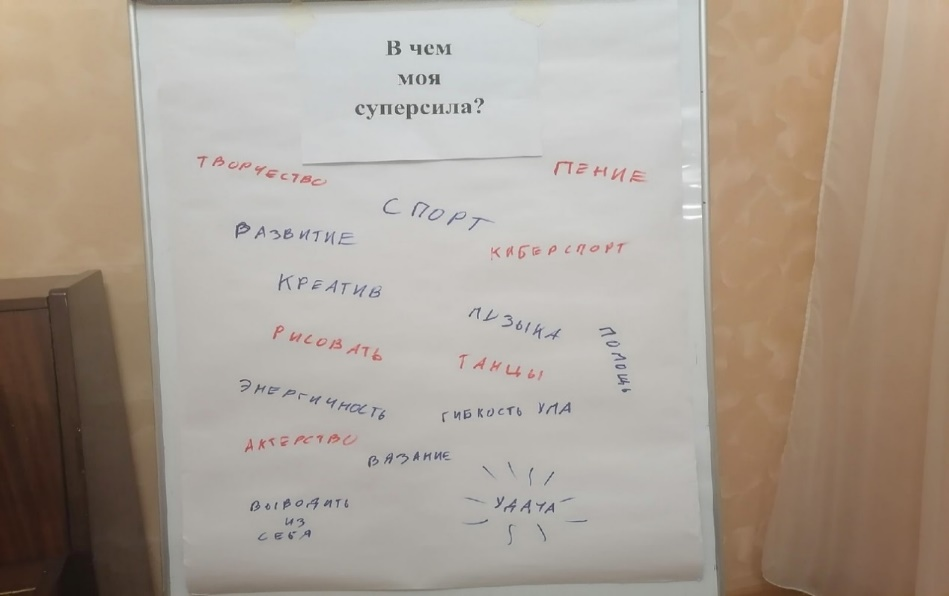 В чем
моя
суперсила?
ТВОРЧЕСТВО
ПЕНИЕ
СПОРТ
РАЗВИТИЕ
КИБЕРСПОРТ
КРЕАТИВ
МУЗЫКА
ПОМОЩЬ
РИСОВАТЬ
ТАНЦЫ
ЭНЕРГИЧНОСТЬ
ГИБКОСТЬ УМА
АКТЕРСТВО
ВЯЗАНИЕ
ВЫВОДИТЬ
ИЗ
СЕБЯ
УДАЧА